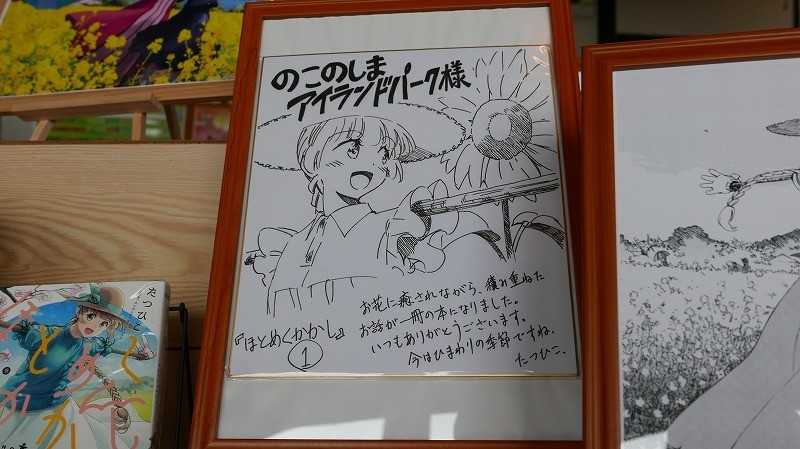 のこのしま
アイランドパーク様
お花に癒されながら、積み重ねた
お話が一冊の本になりました。
いつもありがとうございます。
今はひまわりの季節ですね。
たつひこ.
『ほとめくかかし』
1
たつひこ
ほとめくかかし